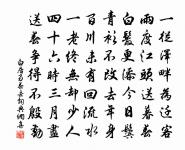 一從澤畔為遷客
兩度江頭送暮春
白髮更添今日鬢
青衫不改去年身
百川未有回流水
一老終無卻少人
四十六時三月盡
送春爭得不殷勤
白居易春去詞典網書